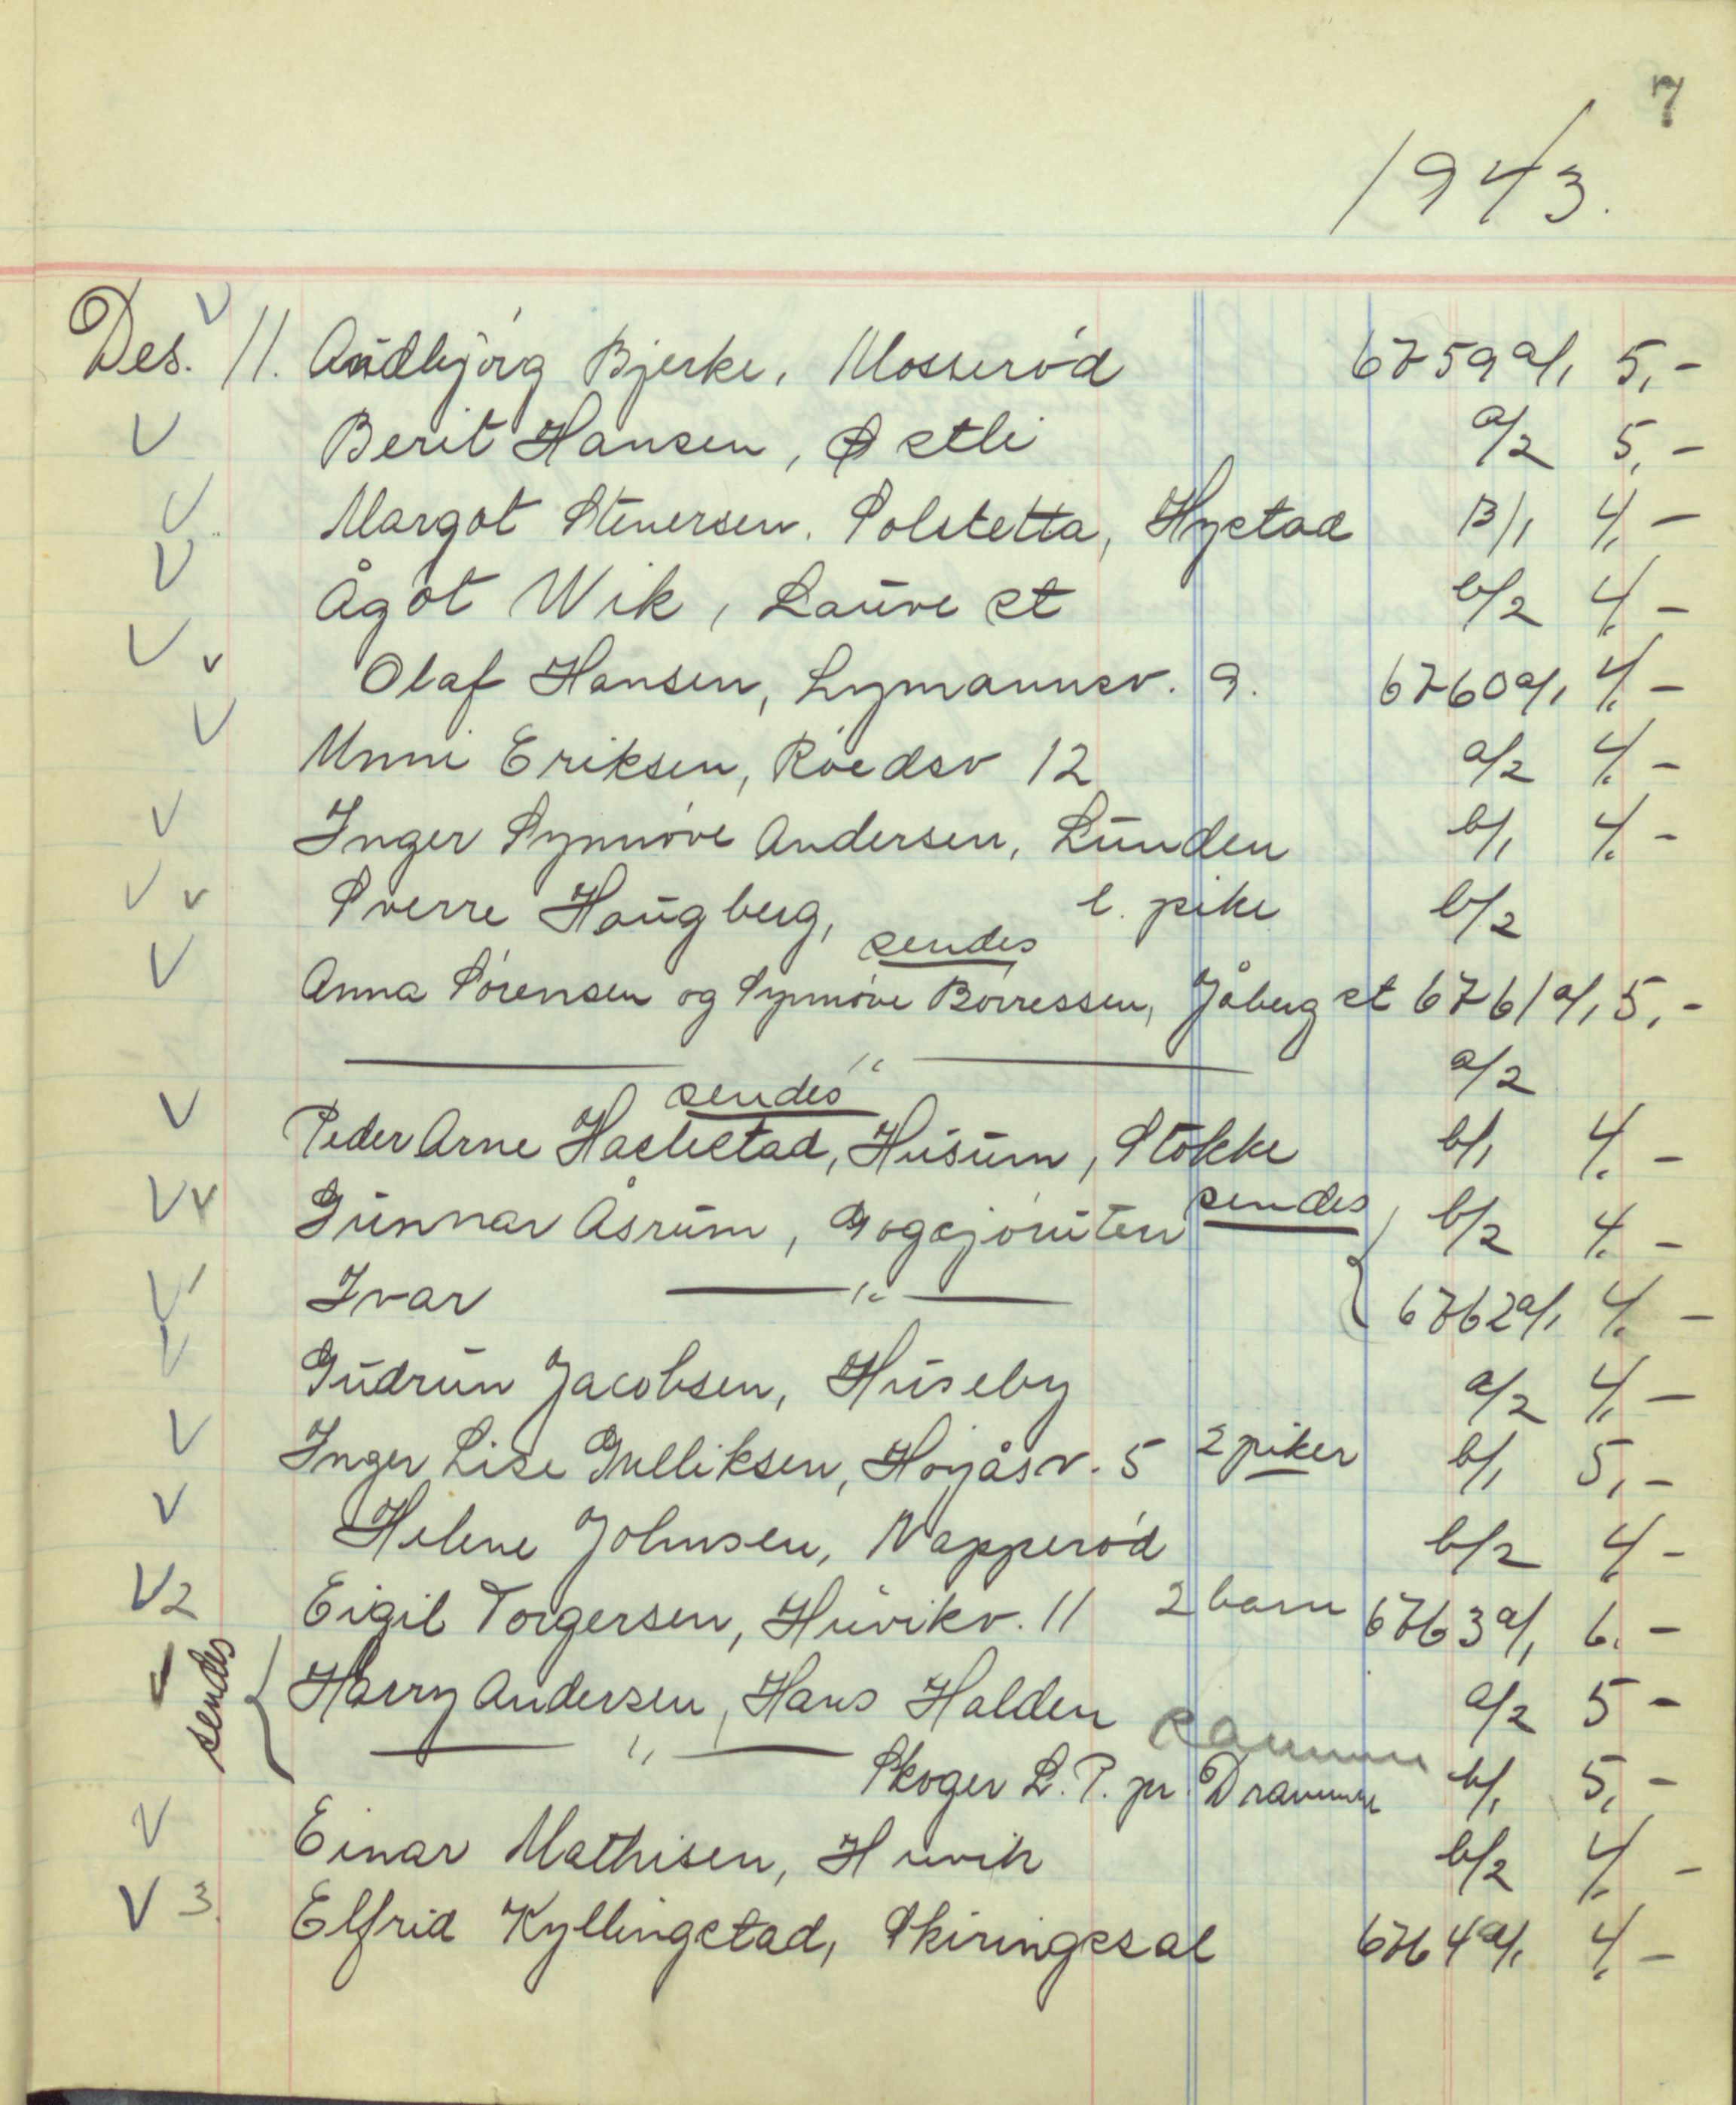 7
1943.
V
Des. 11. Aŭdbjórg Bjerke, Mosseród 6759 a/1 5,-
V Berit Hansen, Østli a/2 5,-
V Margot Stenersen, Solstetta, Hystad B/1 4,-
V Ågot Wik, Laŭve st b/2 4,-
V v Olaf Hansen, Lymannsv. 9. 6760 a/1 4,-
V Unni Eriksen, Róedsv 12 a/2 4,-
V Inger Synnóve Andersen, Lŭnden b/1 4,-
V v Sverre Haŭgberg, l. pike b/2
sendes
V Anna Sórensen og Synnóve Bórressen, Jåberg st 6761 a/1 5,-
— " — a/2
sendes
V Peder Arne Haslestad, Hŭsŭm, Stokke b/1 4,-
V v Gŭnnar Åsrŭm, Gogsjóruten sendes b/2 4,-
V Ivar — " — 6762 a/1 4,-
V Gŭdrŭn Jacobsen, Hŭseby a/2 4,-
V Inger Lise Gulliksen, Hoyåsv. 5 2 piker b/1 5,-
V Helene Johnsen, Napperód b/2 4,-
V2 Eigil Torgersen, Hŭvikv. 11 2 barn 6763 a/1 6,-
V sendes { Harry Andersen, Hans Halden a/2 5-
— " — Skoger L.P. pr. Drammen b/1 5,-
V Einar Mathisen, Huvik b/2 4,-
V 3. Elfrid Kyllingstad, Skiringssal 6764 a/1 4,-